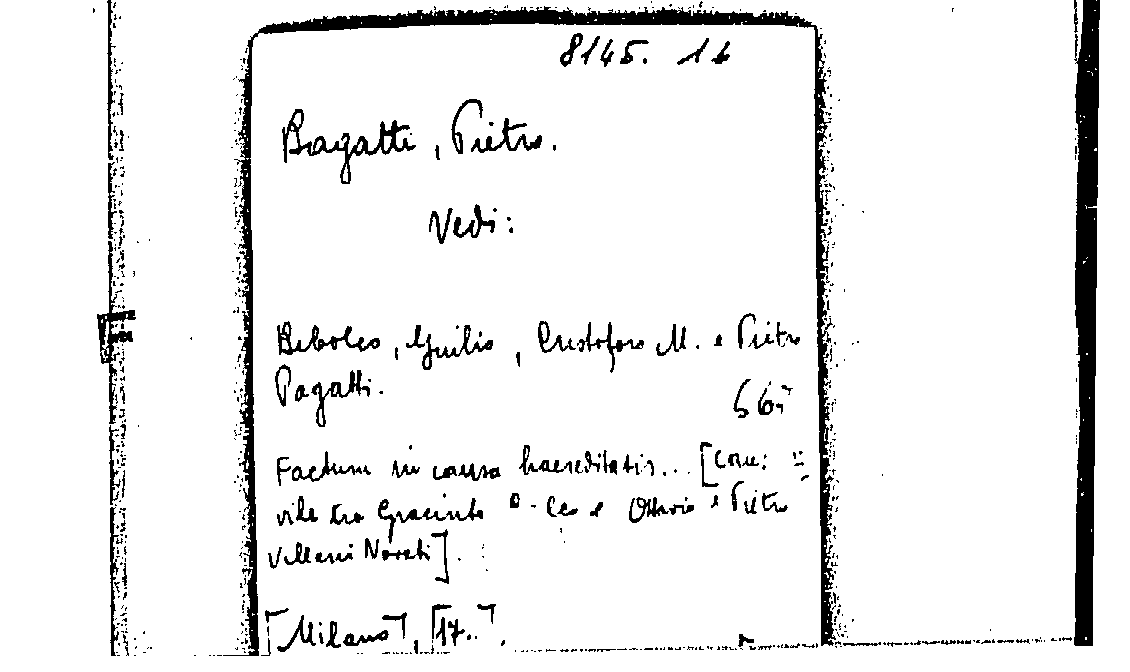 8145. 16
Bagatti, Pietro.
Vedi:
Giulio, Cristoforo M. e Pietro
Pagatti.
Factum in causa haereditatis... [Con:
vile tra Giacinto e Ottavio e Pietro
Villani Novati].
[Milano], [17..].